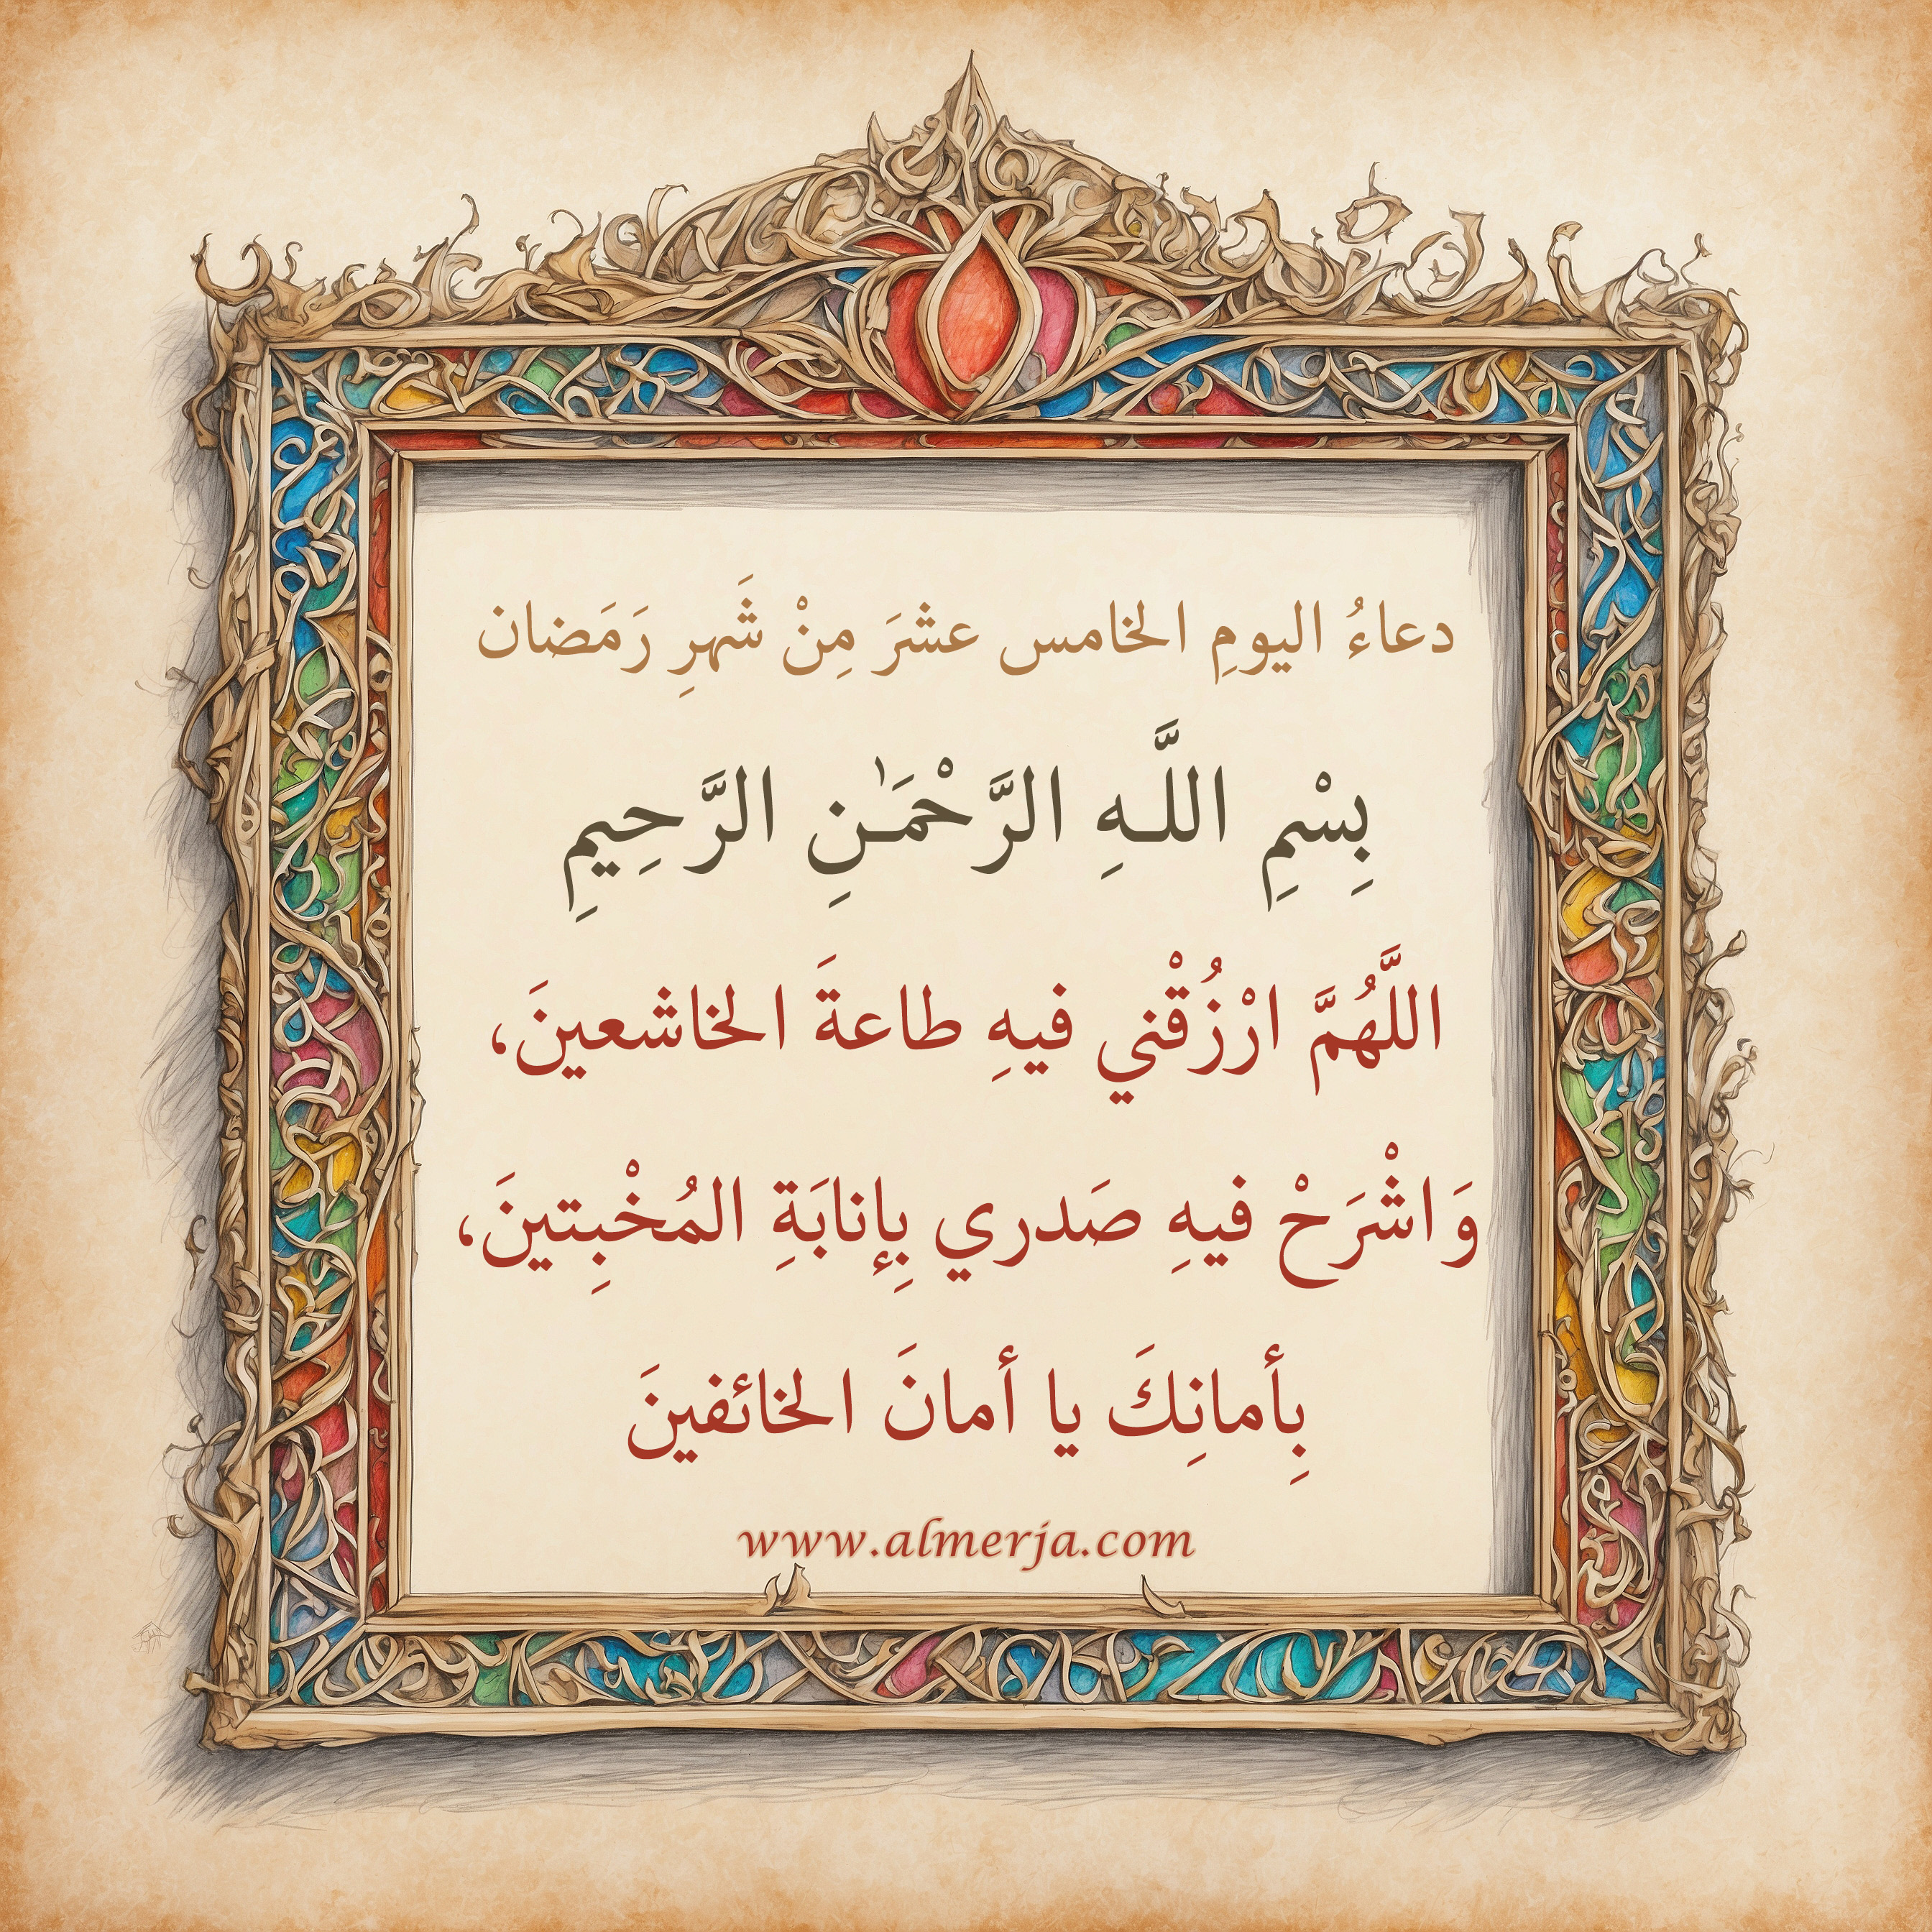 دعاءُ اليومِ الخامس عشرَ مِنْ شَهرِ رَمَضان
بِسْمِ اللَّـهِ الرَّحْمَـٰنِ الرَّحِيمِ
اللَّهُمَّ ارْزُقْني فيهِ طاعةَ الخاشعينَ،
وَاشْرَحْ فيهِ صَدري بِإنابَةِ المُخْبِتينَ،
بِأمانِكَ يا أمانَ الخائفينَ
www.almerja.com